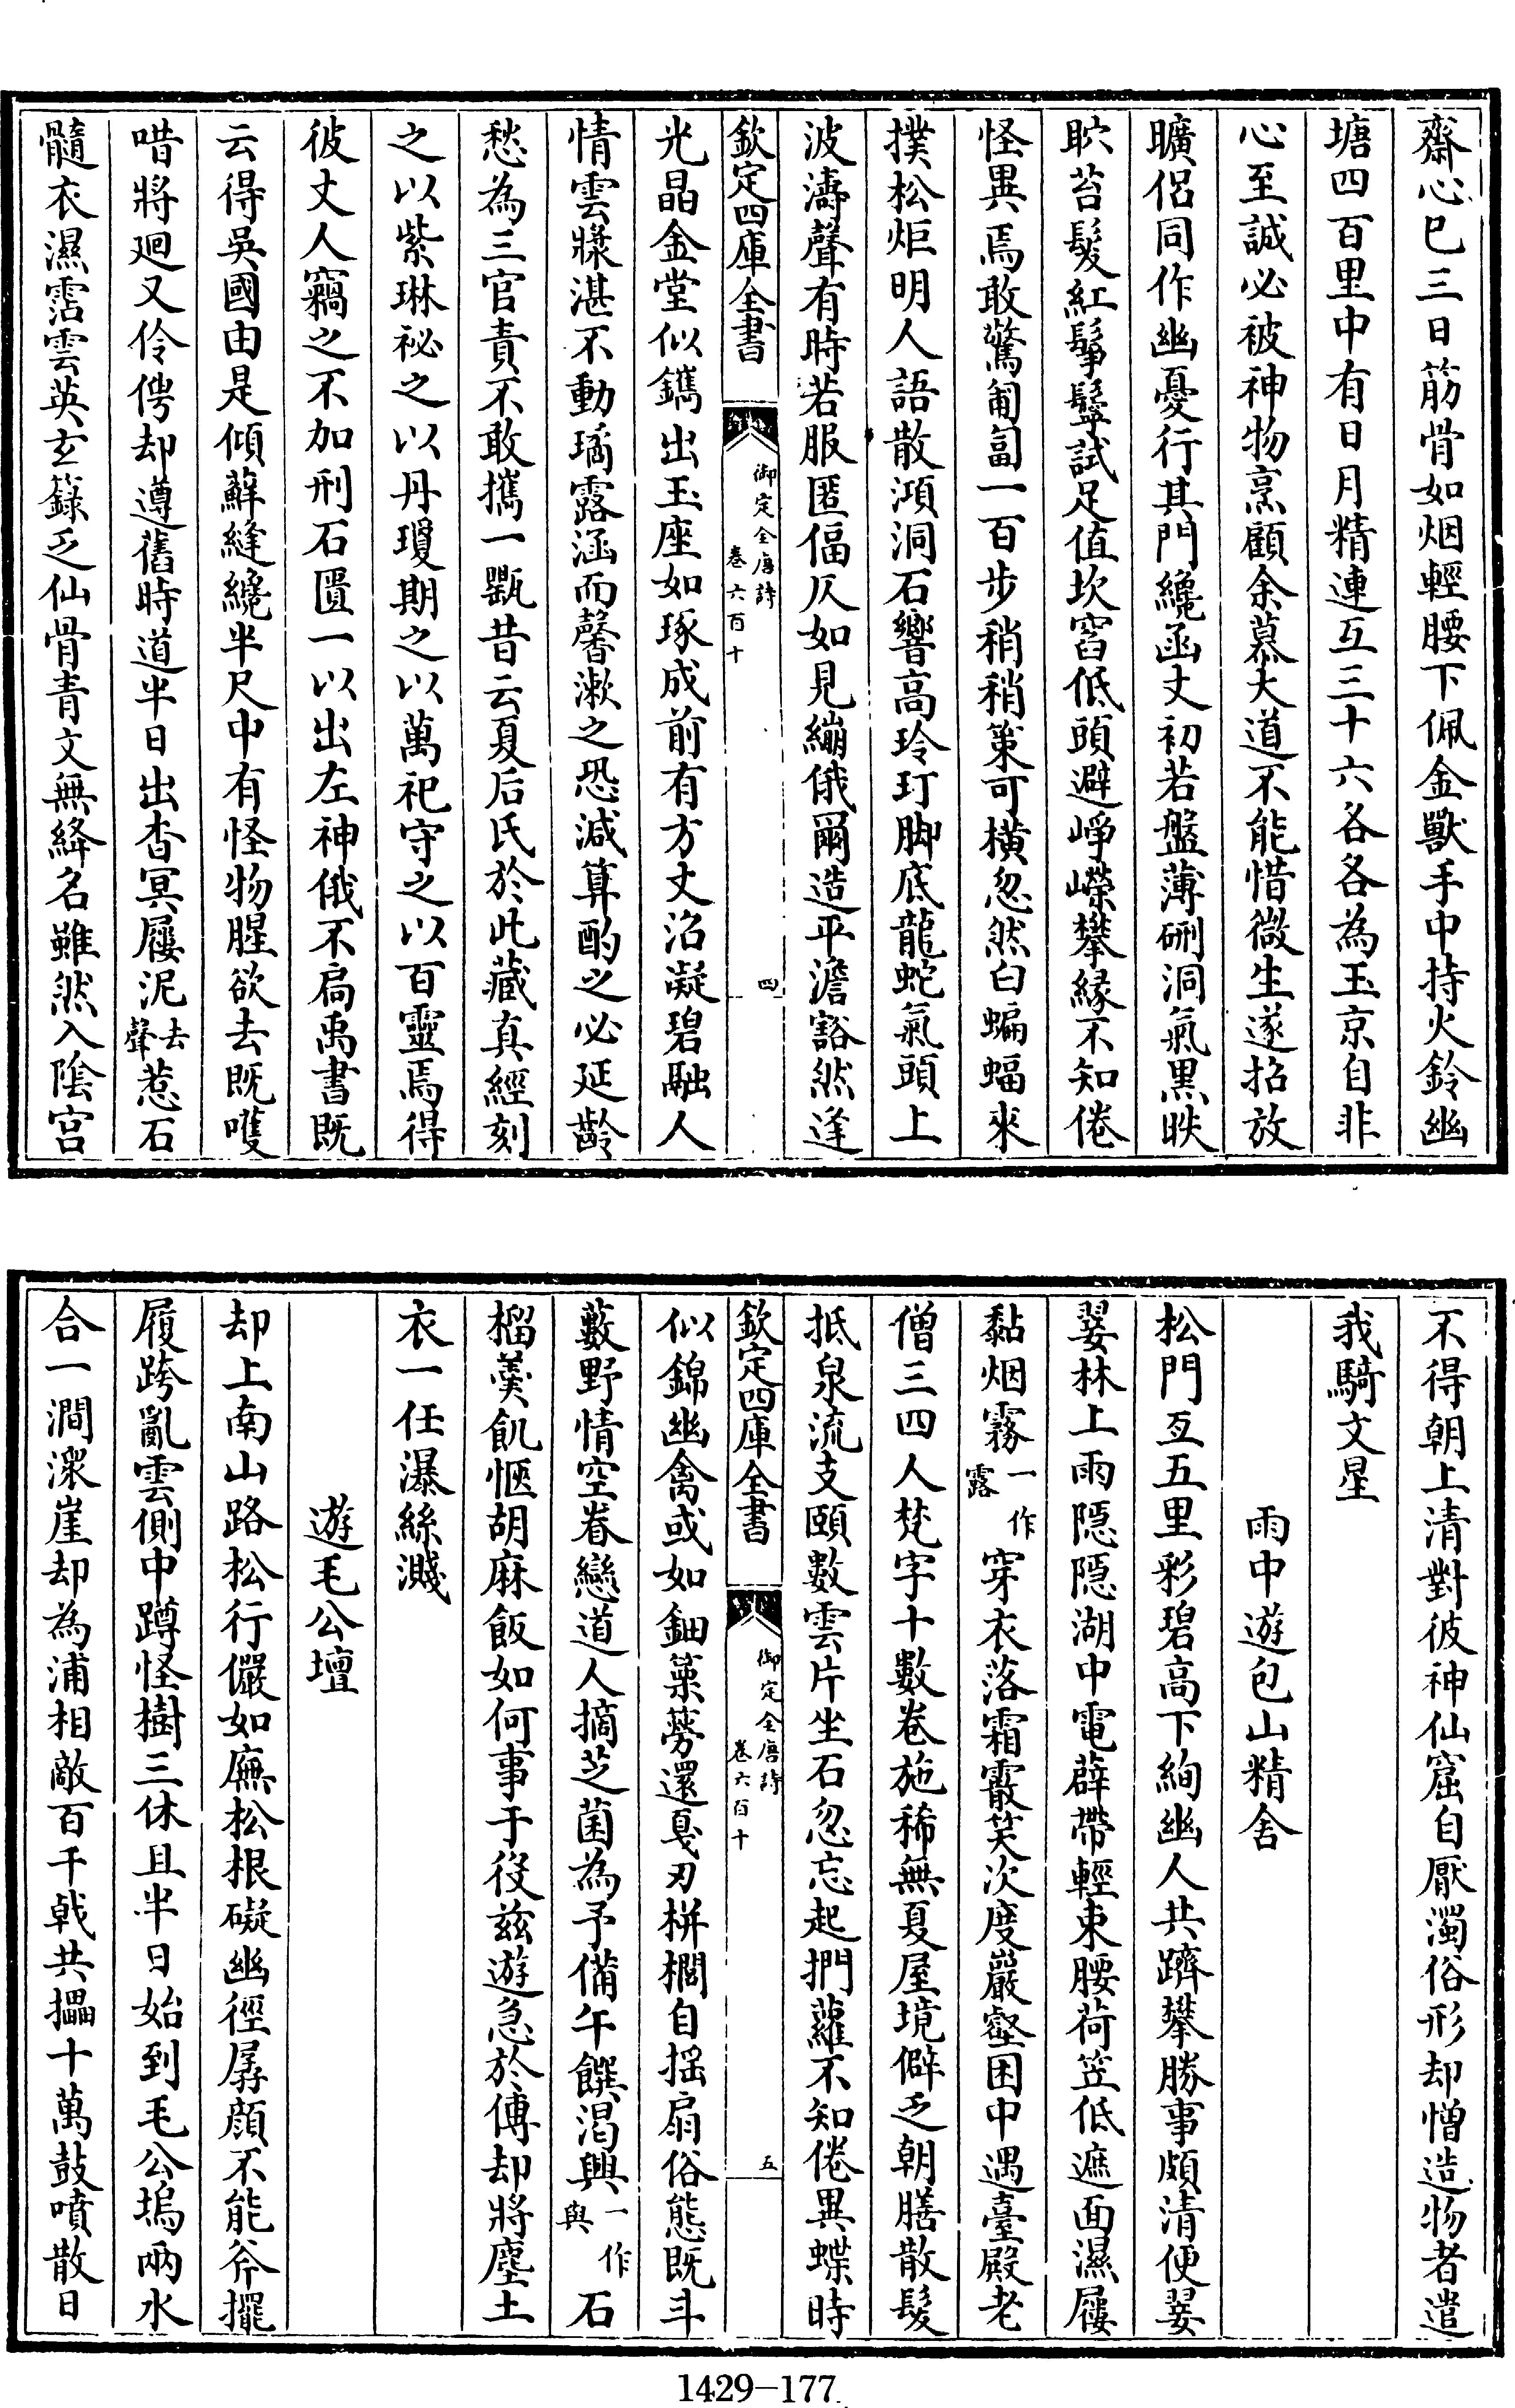 齋心已三日筋骨如烟輕腰下佩金獸手中持火鈴幽
塘四百里中有日月精連亙三十六各各為玉京自非
心至誠必被神物烹顧余慕大道不能惜微生遂招放
曠侶同作幽憂行其門纔函丈初若盤薄硎洞氣黑昳
眝苔髮紅鬇鬡試足值坎窞低頭避崢嶸攀緣不知倦
怪異焉敢驚匍匐一百步稍稍策可橫忽然白蝙蝠來
撲松炬明人語散澒洞石響高玲玎脚底龍蛇氣頭上
波濤聲有時若服匿偪仄如見繃俄爾造平澹豁然逢
欽定四庫全書
御定全唐詩
卷六百十
四
光晶金堂似鐫出玉座如琢成前有方丈沼凝碧融人
情雲漿湛不動璚露涵而馨漱之恐減算酌之必延齡
愁為三官責不敢攜一甖昔云夏后氏於此藏真經刻
之以紫琳祕之以丹瓊期之以萬祀守之以百靈焉得
彼丈人竊之不加刑石匱一以出左神俄不扃禹書既
云得吳國由是傾蘚縫纔半尺中有怪物腥欲去既嚄
唶將廻又伶俜却遵舊時道半日出杳冥屨泥去聲惹石
髓衣濕霑雲英玄籙乏仙骨青文無絳名雖然入陰宫
不得朝上清對彼神仙窟自厭濁俗形却憎造物者遣
我騎文星
雨中遊包山精舍
松門亙五里彩碧高下絢幽人共躋攀勝事頗清便翣
翣林上雨隱隱湖中電薜帶輕束腰荷笠低遮面濕屨
黏烟霧一作露穿衣落霜霰笑次度巖壑困中遇臺殿老
僧三四人梵字十數卷施稀無夏屋境僻乏朝膳散髮
抵泉流支頤數雲片坐石忽忘起捫蘿不知倦異蝶時
欽定四庫全書
御定全唐詩
卷六百十
五
似錦幽禽或如鈿篥簩還戛刃栟櫚自揺扇俗態既斗
藪野情空眷戀道人摘芝菌為予備午饌渴興一作與石
榴羮飢愜胡麻飯如何事于役兹遊急於傳却將塵土
衣一任瀑絲濺
遊毛公壇
却上南山路松行儼如廡松根礙幽徑孱顔不能斧擺
履跨亂雲側巾蹲怪樹三休且半日始到毛公塢兩水
合一澗潨崖却為浦相敵百千戟共攂十萬鼓噴散日
1429-177